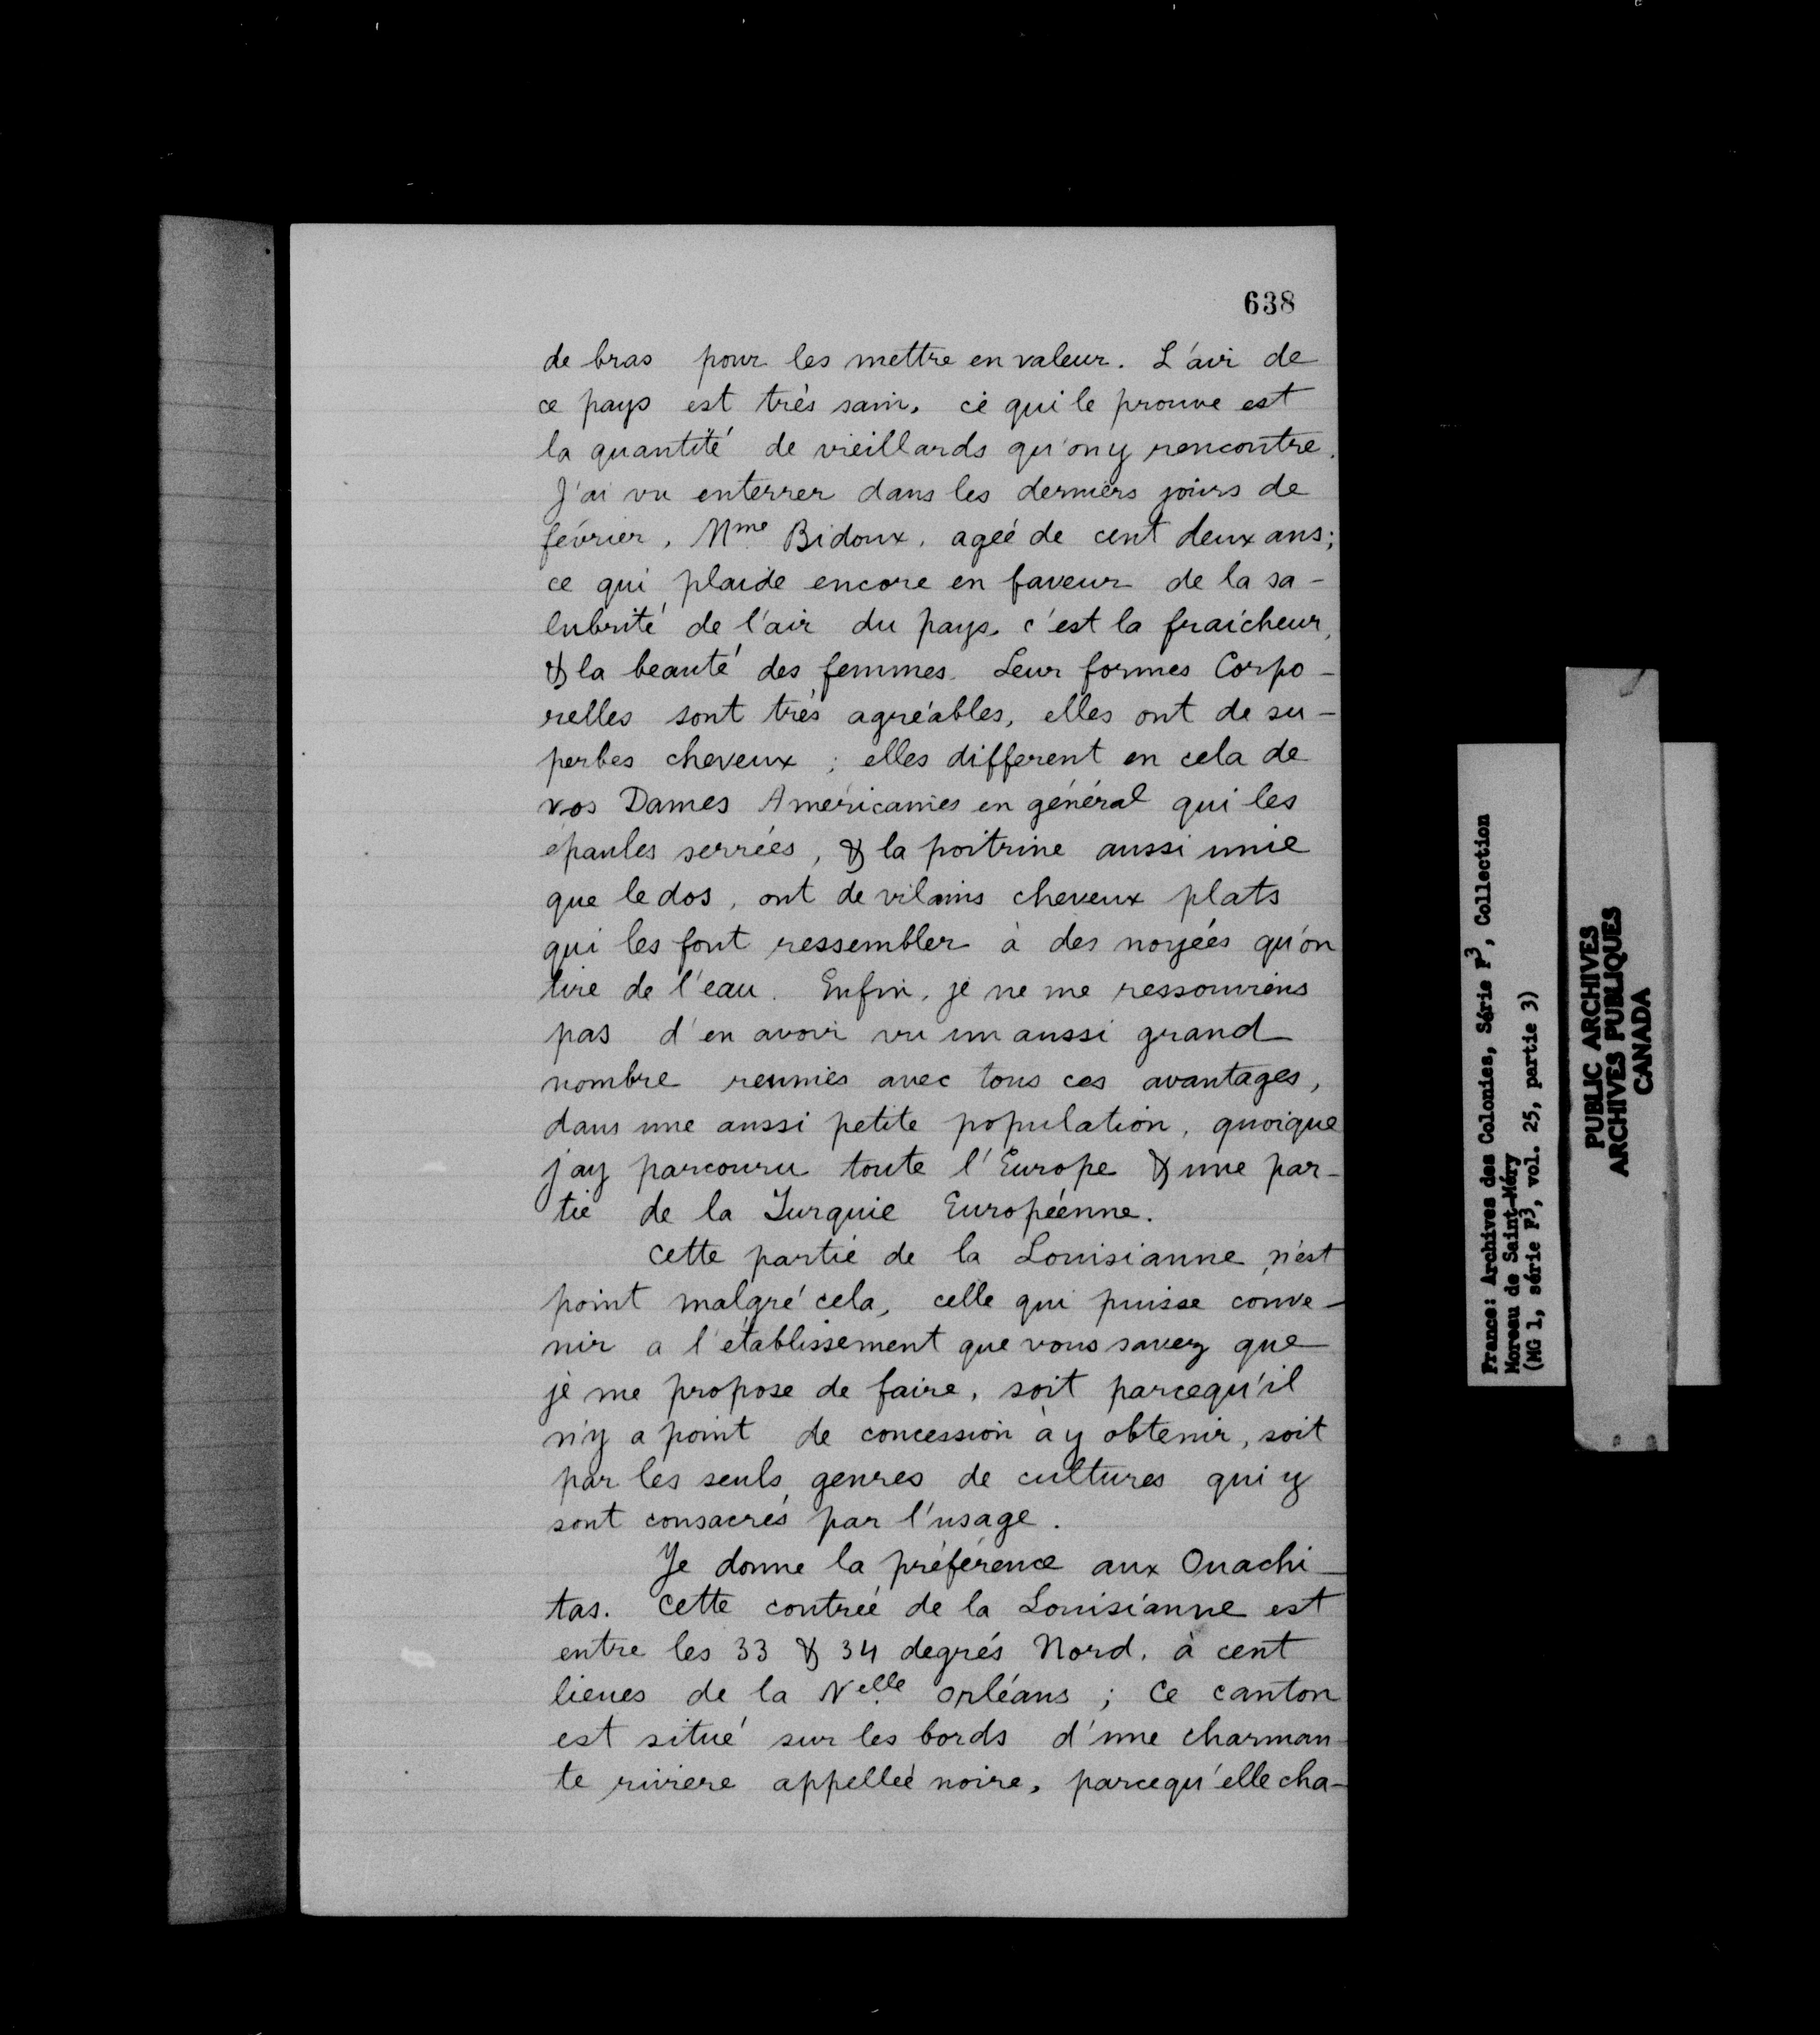 638
de bras pour les mettre en valeur. L'air de
ce pays est très sain, ce qui le prouve est
la quantité de vieillards qu'on y rencontre.
J'ai vu enterrer dans les derniers jours de
février, Mme Bidoux, ageé de cent deux ans;
ce qui plaide encore en faveur de la sa-
lubrité de l'air du pays, c'est la fraicheur,
& la beauté des femmes. Leur formes Corpo-
relles sont très agréables, elles ont de su-
perbes cheveux ; elles different en cela de
vos Dames Américaines en général qui les
épaules serrées, & la poitrine aussi unie
que le dos, ont de vilains cheveux plats
qui les font ressembler à des noyées qu'on
tire de l'eau. Enfin, je ne me ressouviens
pas d'en avoir vu un aussi grand
nombre reunies avec tous ces avantages,
dans une aussi petite population, quoique
j'ay parcouru toute l'Europe & une par-
tie de la Turquie Européenne.
Cette partie de la Louisianne n'est
point malgré cela, celle qui puisse conve-
nir a l'établissement que vous savez que
je me propose de faire, soit parcequ'il
n'y a point de concession à y obtenir, soit
par les seuls genres de cultures qui y
sont consacrés par l'usage.
Je donne la préférence aux Ouachi-
tas. Cette contrée de la Louisianne est
entre les 33 & 34 degrés Nord, à cent
lieues de la Nelle Orléans ; Ce canton
est situé sur les bords d'une charman-
te riviere appelleé noire, parcequ'elle cha-
France: Archives des Colonies, Série F3, Collection
Moreau de Saint-Méry
(MG 1, série F3, vol. 25, partie 3)
PUBLIC ARCHIVES
ARCHIVES PUBLIQUES
CANADA